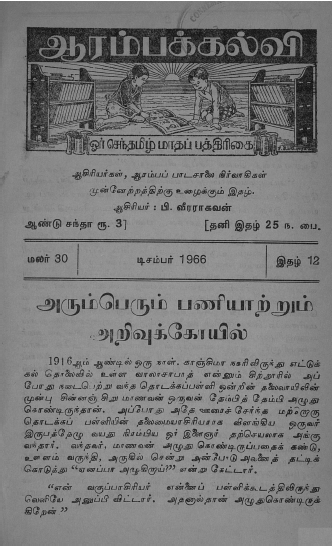 ஆரம்பக்கல்வி
ஓர் செந்தமிழ் மாதப் பத்திரிகை
ஆசிரியர்கள், ஆரம்பப் பாடசாலை நிர்வாகிகள்
முன்னேற்றத்திற்கு உழைக்கும் இதழ்.
ஆசிரியர் : பி. வீரராகவன்
ஆண்டு சந்தா ரூ. 3] [தனி இதழ் 25 ந. பை.
மலர் 30 டிசம்பர் 1966 இதழ் 12
அரும்பெரும் பணியாற்றும்
அறிவுக்கோயில்
1916ஆம் ஆண்டில் ஒரு நாள். காஞ்சிமா நகரிலிருந்து எட்டுக்
கல் தொலைவில் உள்ள வாலாசாபாத் என்னும் சிற்றூரில் அப்
போது நடைபெற்று வந்த தொடக்கப்பள்ளி ஒன்றின் தலைவாயிலின்
முன்பு சின்னஞ் சிறு மாணவன் ஒருவன் தேம்பித் தேம்பி அழுது
கொண்டிருந்தான். அப்போது அதே ஊரைச் சேர்ந்த மற்றொரு
தொடக்கப் பள்ளியின் தலைமையாசிரியராக விளங்கிய ஒருவர்
இருபத்தேழு வயது நிரம்பிய ஓர் இளைஞர் தற்செயலாக அங்கு
வந்தார். வந்தவர், மாணவன் அழுது கொண்டிருப்பதைக் கண்டு,
உள்ளம் வருந்தி, அருகில் சென்று அன்போடு அவனைத் தட்டிக்
கொடுத்து “ஏனப்பா அழுகிறாய்?” என்று கேட்டார்.
“என் வகுப்பாசிரியர் என்னைப் பள்ளிக்கூடத்திலிருந்து
வெளியே அனுப்பி விட்டார். அதனால்தான் அழுதுகொண்டிருக்
கிறேன்”